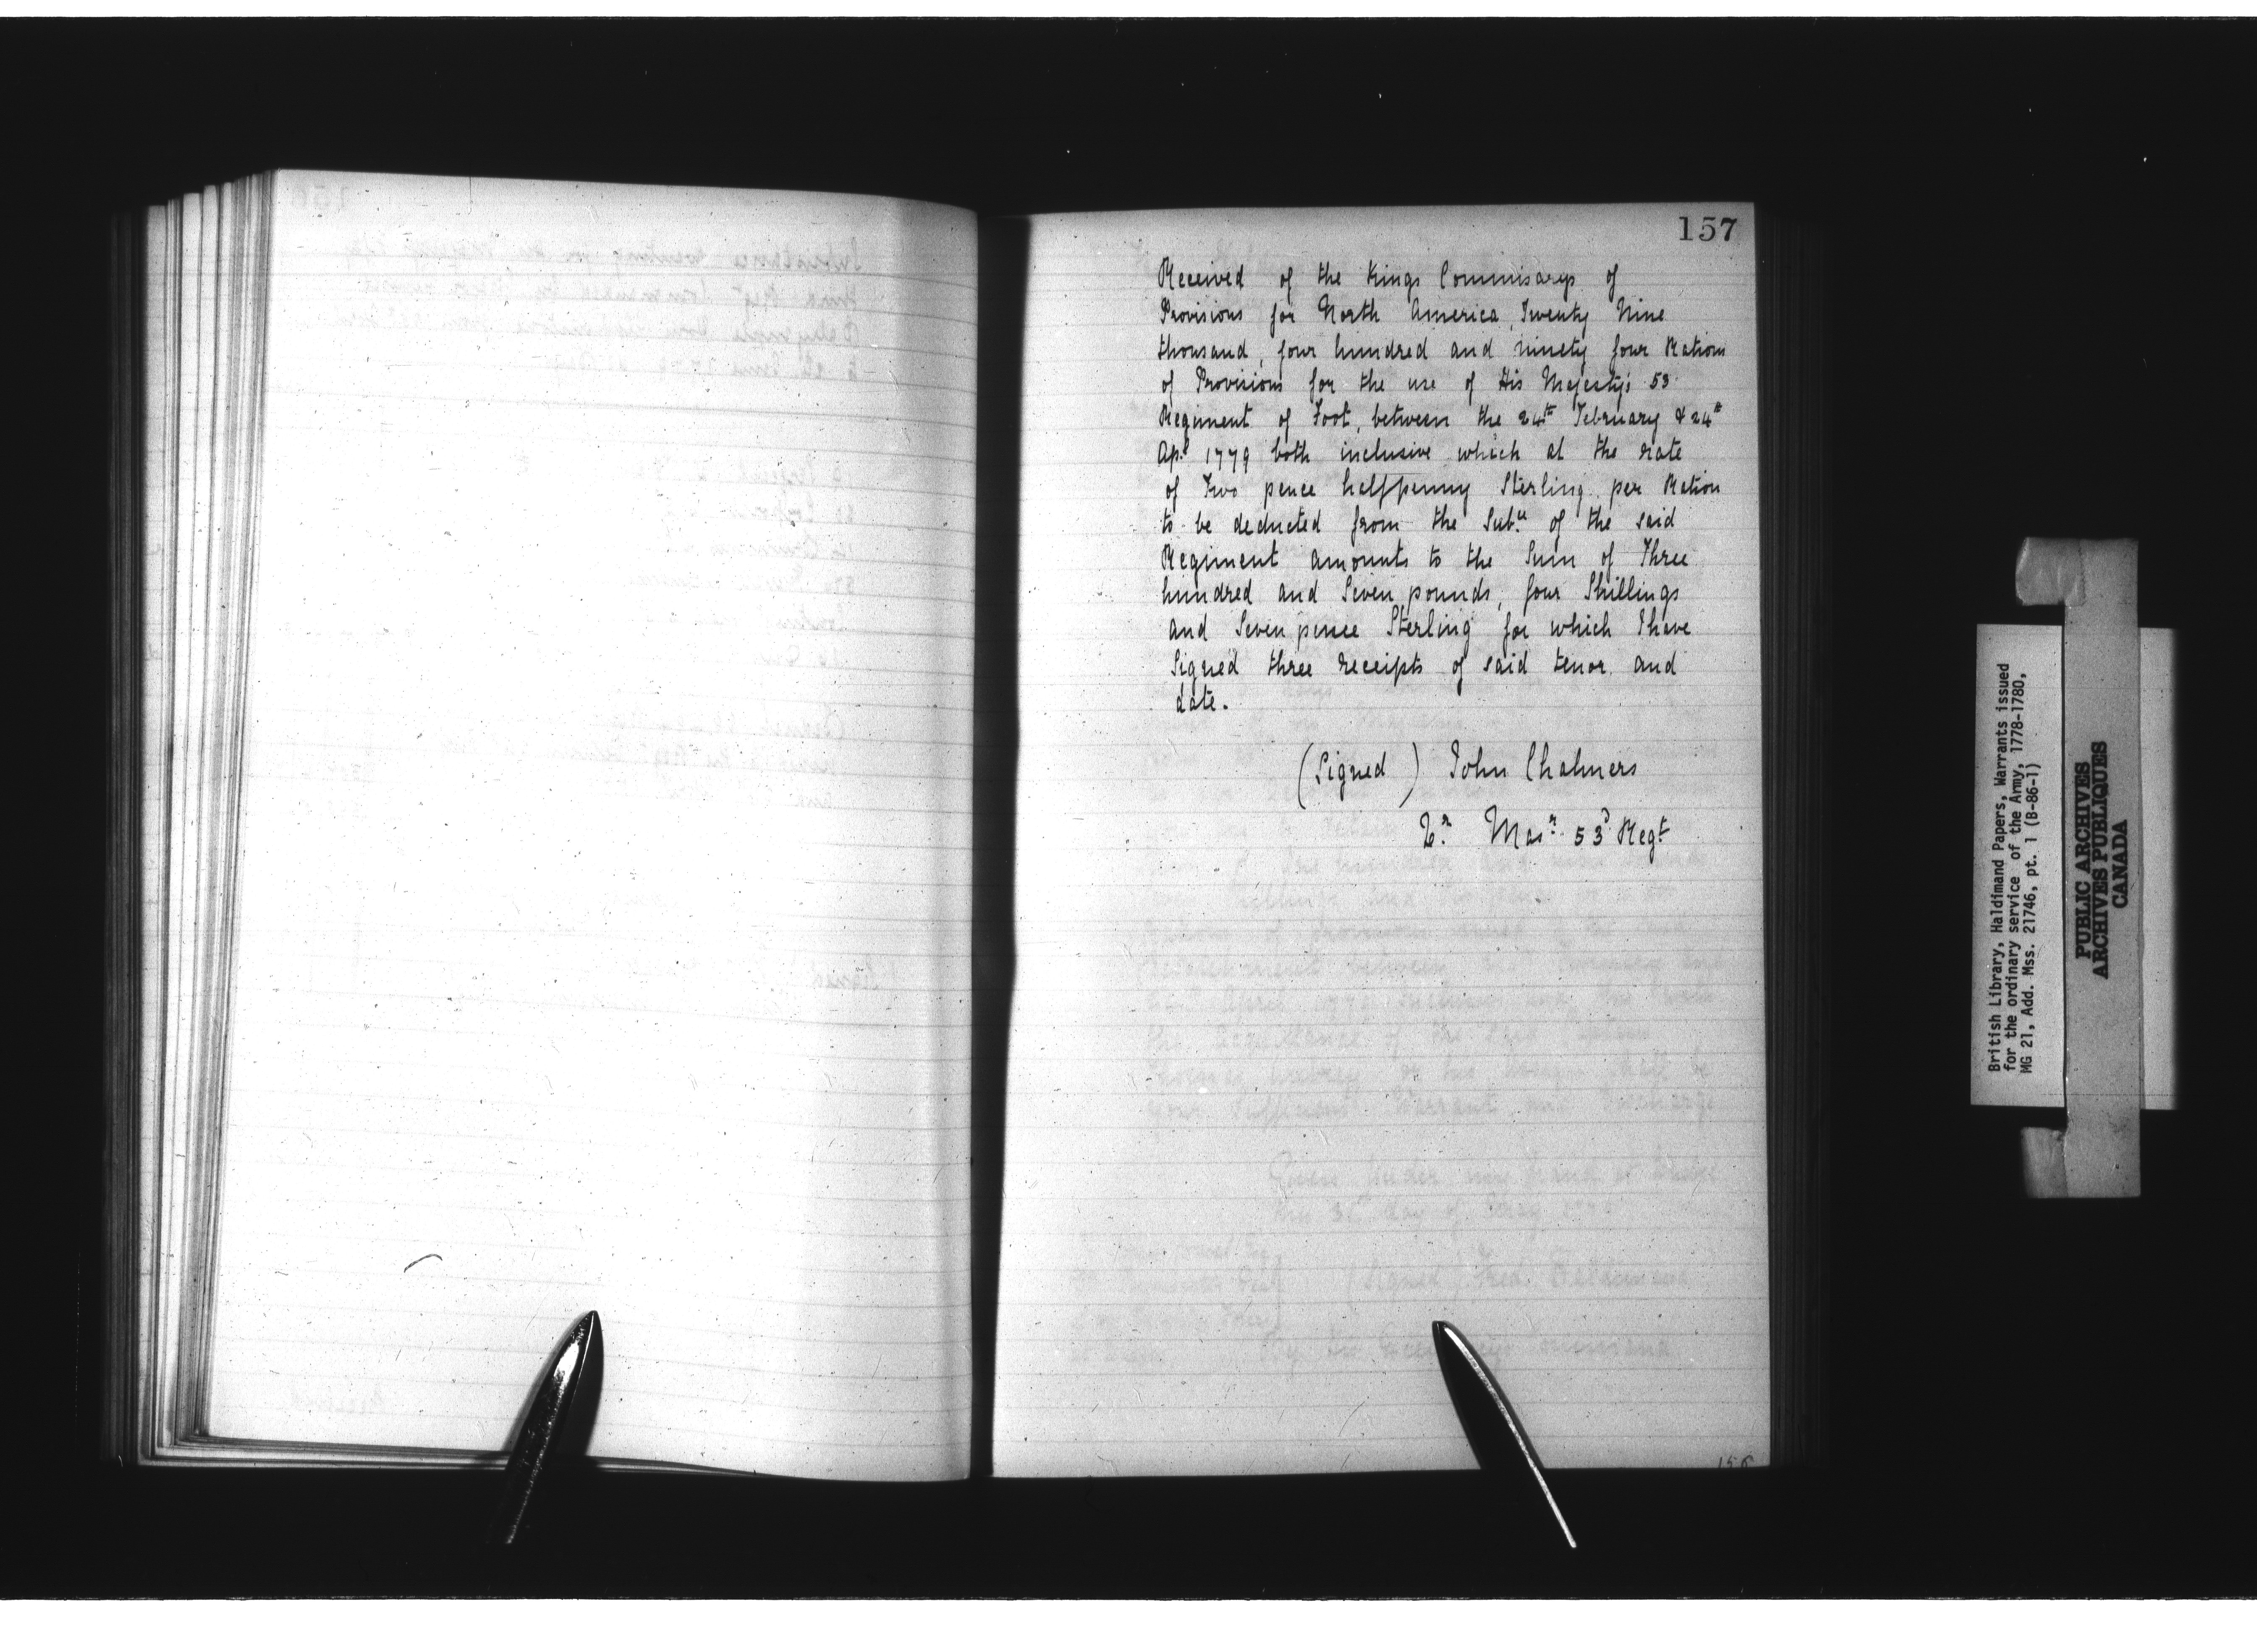 157
Received of the Kings Commissarys of
Provisions for North America, Twenty Nine
thousand, four hundred and ninety four Rations
of Provisions for the use of His Majesty's 53
Regiment of Foot, between the 24th February & 24th
Apl 1779 both inclusive which at the rate
of Two pence halfpenny Sterling per Ration
to be deducted from the Sub.ce of the said
Regiment amounts to the Sum of Three
hundred and Seven pounds, four Shillings
and Seven pence Sterling for which I have
Signed three receipts of said tenor and
date.
(Signed) John Chalmers
Qr. Masr. 53d Regt
156
British Library, Haldimand Papers, Warrants issued
for the ordinary service of the Army, 1778-1780,
MG 21, Add. Mss. 21746, pt. 1 (B-86-1)
PUBLIC ARCHIVES
ARCHIVES PUBLIQUES
CANADA